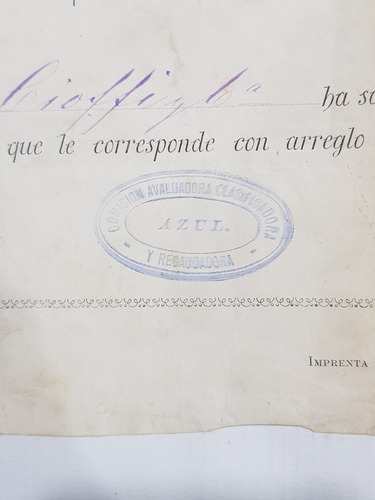 Cioffi y Cª ha sa
que le corresponde con arreglo
COMISION AVALUADORA CLASIFICADORA
AZUL.
Y RECAUDADORA
IMPRENTA